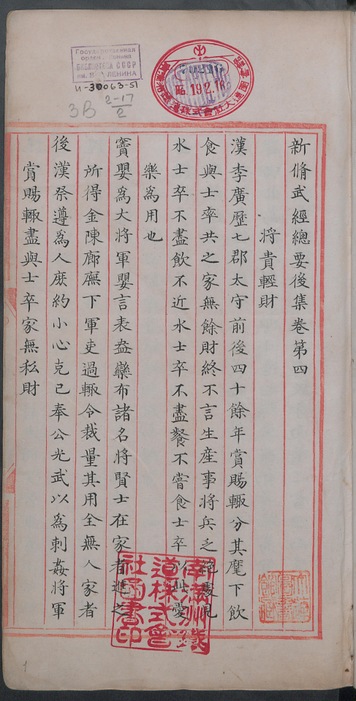 Государственная
ордена Ленина
БИБЛИОТЕКА СССР
им. В. И. ЛЕНИНА
И-30063-51
3В 2-17/2
昭 19.2.16
新脩武經總要後集卷第四
將貴輕財
漢李廣歷七郡太守前後四十餘年賞賜輙分其麾下飲
食與士卒共之家無餘財終不言生產事將兵乏
水士卒不盡飲不近水士卒不盡餐不嘗食士卒
樂為用也
竇嬰為大將軍嬰言袁盎欒布諸名將賢士在家者進之
所得金陳廊廡下軍吏過輙令裁量其用全無人家者
後漢祭遵為人廉約小心克己奉公光武以為刺姦將軍
賞賜輙盡與士卒家無私財
南滿洲鐵
道株式會
社圖書印